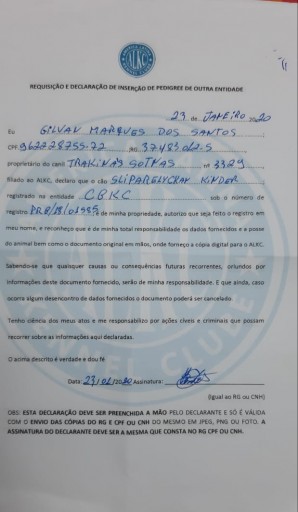 ALKC
REQUISIÇÃO E DECLARAÇÃO DE INSERÇÃO DE PEDIGREE DE OUTRA ENTIDADE
23 de JANEIRO 2020
Eu GILVAN MARQUES DOS SANTOS
CPF: 962228755-72 RG: 37485062-5
proprietário do canil TRAKINAS SOTNAS nº 3329
filiado ao ALKC, declaro que o cão SLIPARELYCRAN KINDER
registrado na entidade CBKC sob o número de
registro de minha propriedade, autorizo que seja feito o registro em
meu nome, e reconheço que é de minha total responsabilidade os dados fornecidos e a posse
do animal bem como o documento original em mãos, onde forneço a cópia digital para o ALKC.
Sabendo-se que quaisquer causas ou consequências futuras recorrentes, oriundos por
informações deste documento fornecido, serão de minha responsabilidade. E que ainda, caso
ocorra algum desencontro de dados fornecidos o documento poderá ser cancelado.
Tenho ciência dos meus atos e me responsabilizo por ações cíveis e criminais que possam
recorrer sobre as informações aqui declaradas.
O acima descrito é verdade e dou fé
Data: 23/01/2020 Assinatura:
(Igual ao RG ou CNH)
OBS: ESTA DECLARAÇÃO DEVE SER PREENCHIDA A MÃO PELO DECLARANTE E SÓ É VÁLIDA
COM O ENVIO DAS CÓPIAS DO RG E CPF OU CNH DO MESMO EM JPEG, PNG OU FOTO. A
ASSINATURA DO DECLARANTE DEVE SER A MESMA QUE CONSTA NO RG CPF OU CNH.